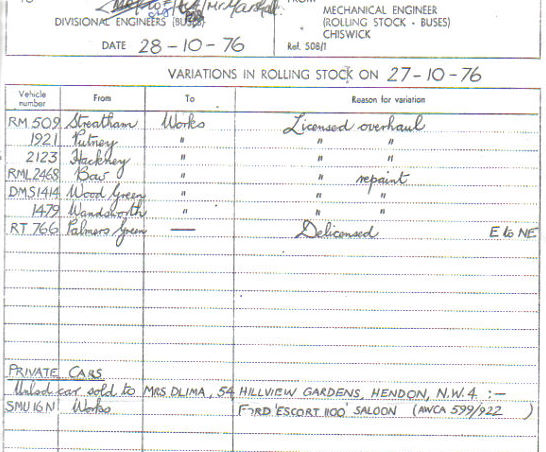 TO
Mr Marshall
FROM
MECHANICAL ENGINEER
(ROLLING STOCK - BUSES)
CHISWICK
Ref. 508/1
DIVISIONAL ENGINEERS (BUSES)
DATE 28-10-76
VARIATIONS IN ROLLING STOCK ON 27-10-76
Vehicle number From To Reason for variation
RM 509 Streatham Works Licensed overhaul
1921 Putney " " "
2123 Hackney " " "
RML 2468 Bow " " repaint
DMS 1414 Wood Green " " "
1479 Wandsworth " " "
RT 766 Palmers Green — Delicensed E to NE
PRIVATE CARS
car sold to MRS DLIMA, 54 HILLVIEW GARDENS, HENDON, N.W.4. :-
SMU 16N Works FORD 'ESCORT 1100' SALOON (AWCA 599/922 )